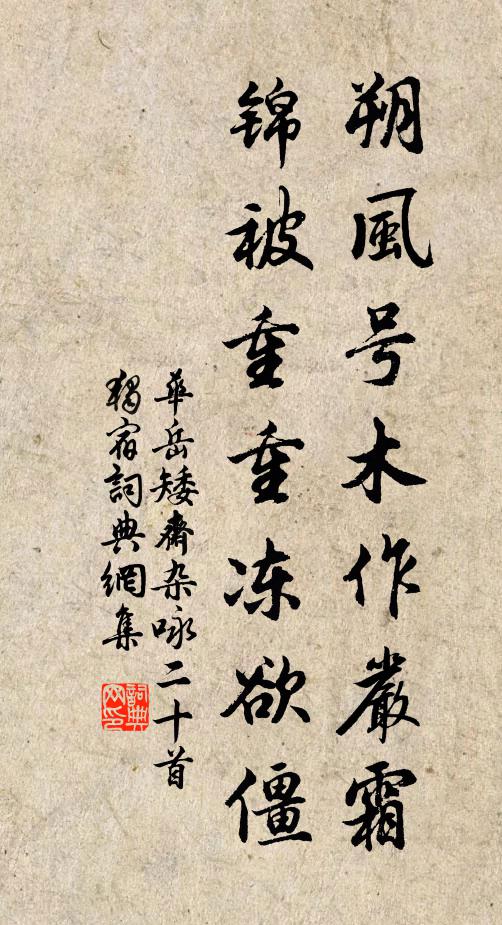 朔風号木作嚴霜
锦被重重冻欲僵
華岳矮齋杂咏二十首
獨宿詞典網集
詞典
网印